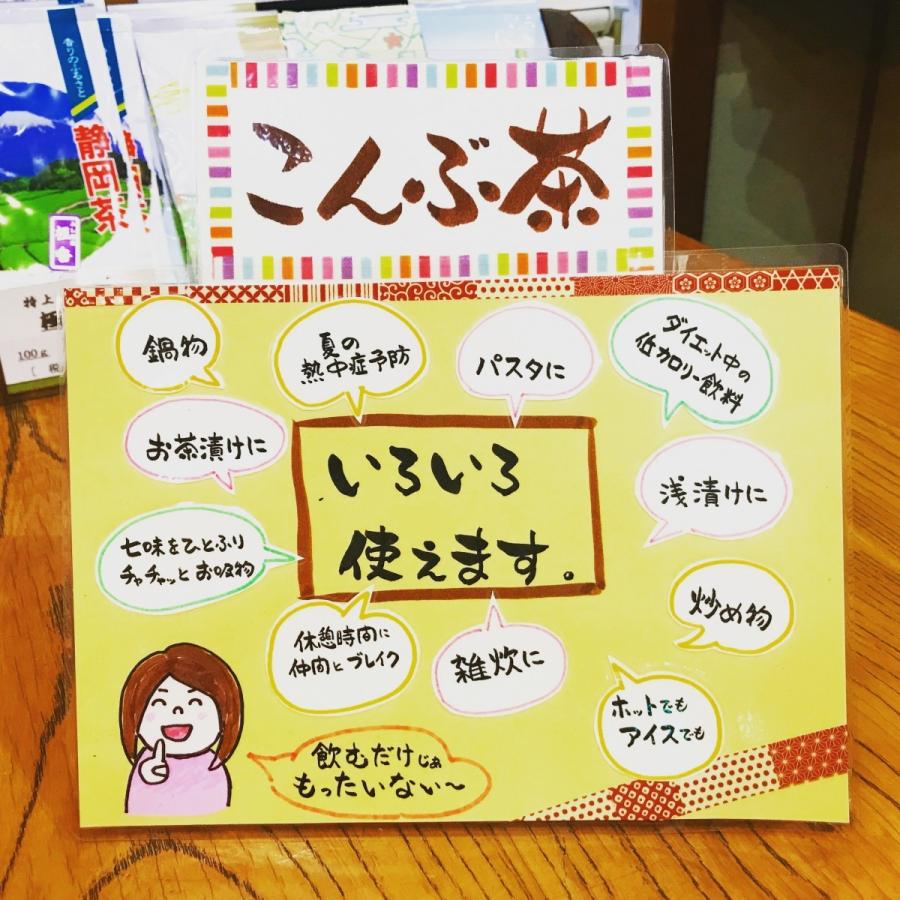 香りのふるさと
静岡茶
特上
100g
こんぶ茶
鍋物
夏の
熱中症予防
パスタに
ダイエット中の
低カロリー飲料
お茶漬けに
いろいろ
使えます。
浅漬けに
七味をひとふり
チャチャッとお吸物
炒め物
休憩時間に
仲間とブレイク
雑炊に
ホットでも
アイスでも
飲むだけじゃ
もったいない〜